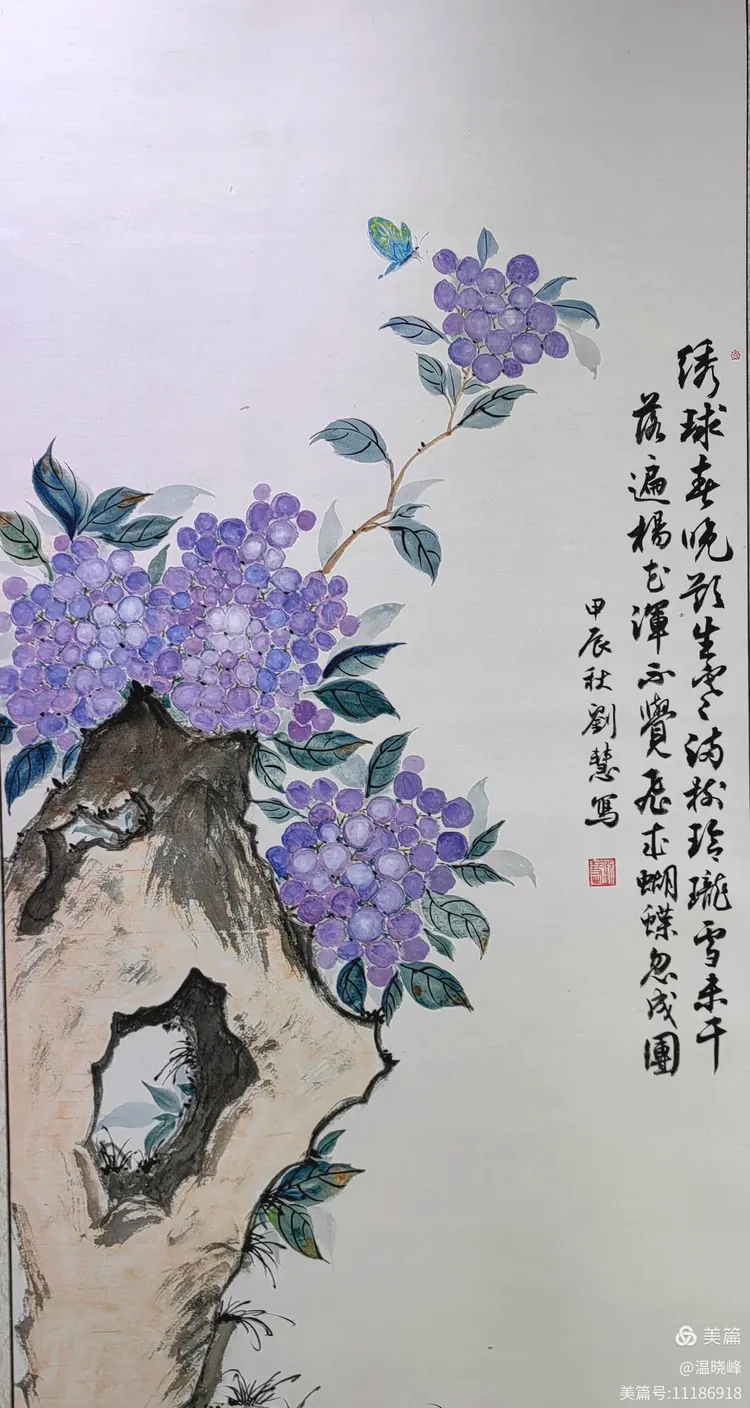 绣球春晚欲生寒满树玲瓏雪未干
落遍楊花渾不覺飛来蝴蝶忽成團
甲辰秋劉慧寫
美篇
@温晓峰
美篇号:11186918